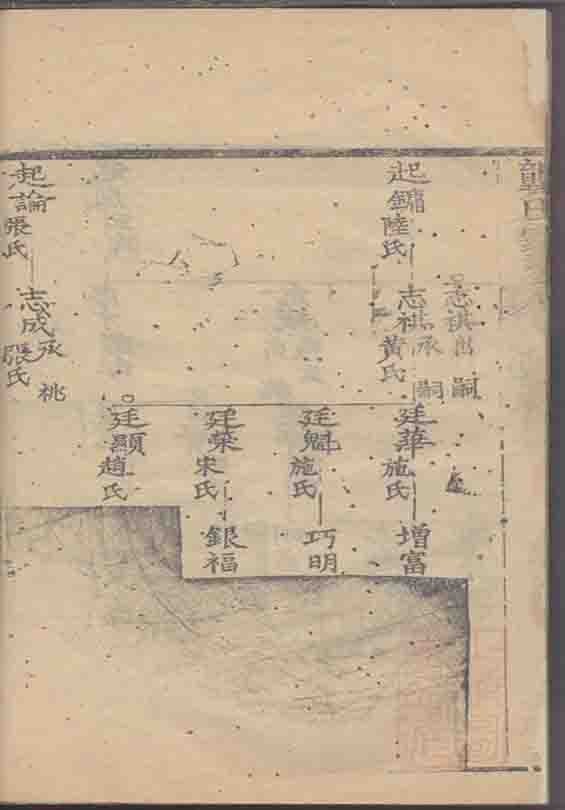 龔氏
起鏞陸氏
志祺出嗣
志祺承嗣
黃氏
廷華施氏
增富
廷魁施氏
巧明
廷榮宋氏
銀福
廷顯趙氏
起論張氏
志成承祧
張氏